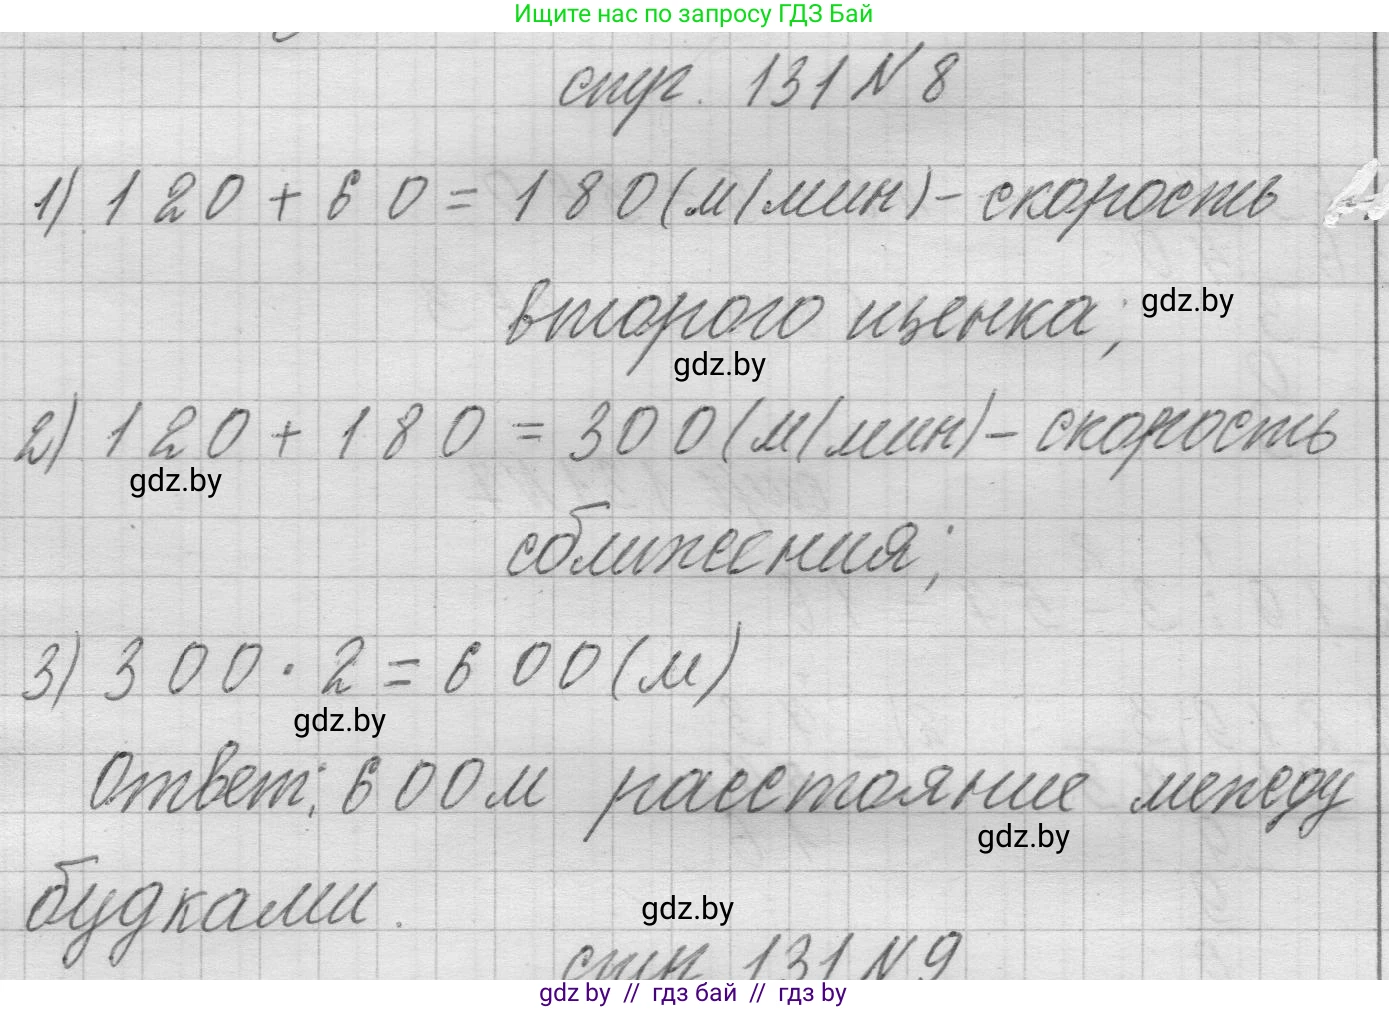 Ищите нас по запросу ГДЗ Бай
стр. 131 N 8
1) 120 + 60 = 180 (м/мин) - скорость
второго щенка;
gdz.by
gdz.by
2) 120 + 180 = 300 (м/мин) - скорость
gdz.by
сближения;
3) 300 · 2 = 600 (м)
gdz.by
Ответ: 600 м расстояние между
gdz.by
будками.
gdz.by
стр. 131 N 9
gdz by // гдз бай // гдз by